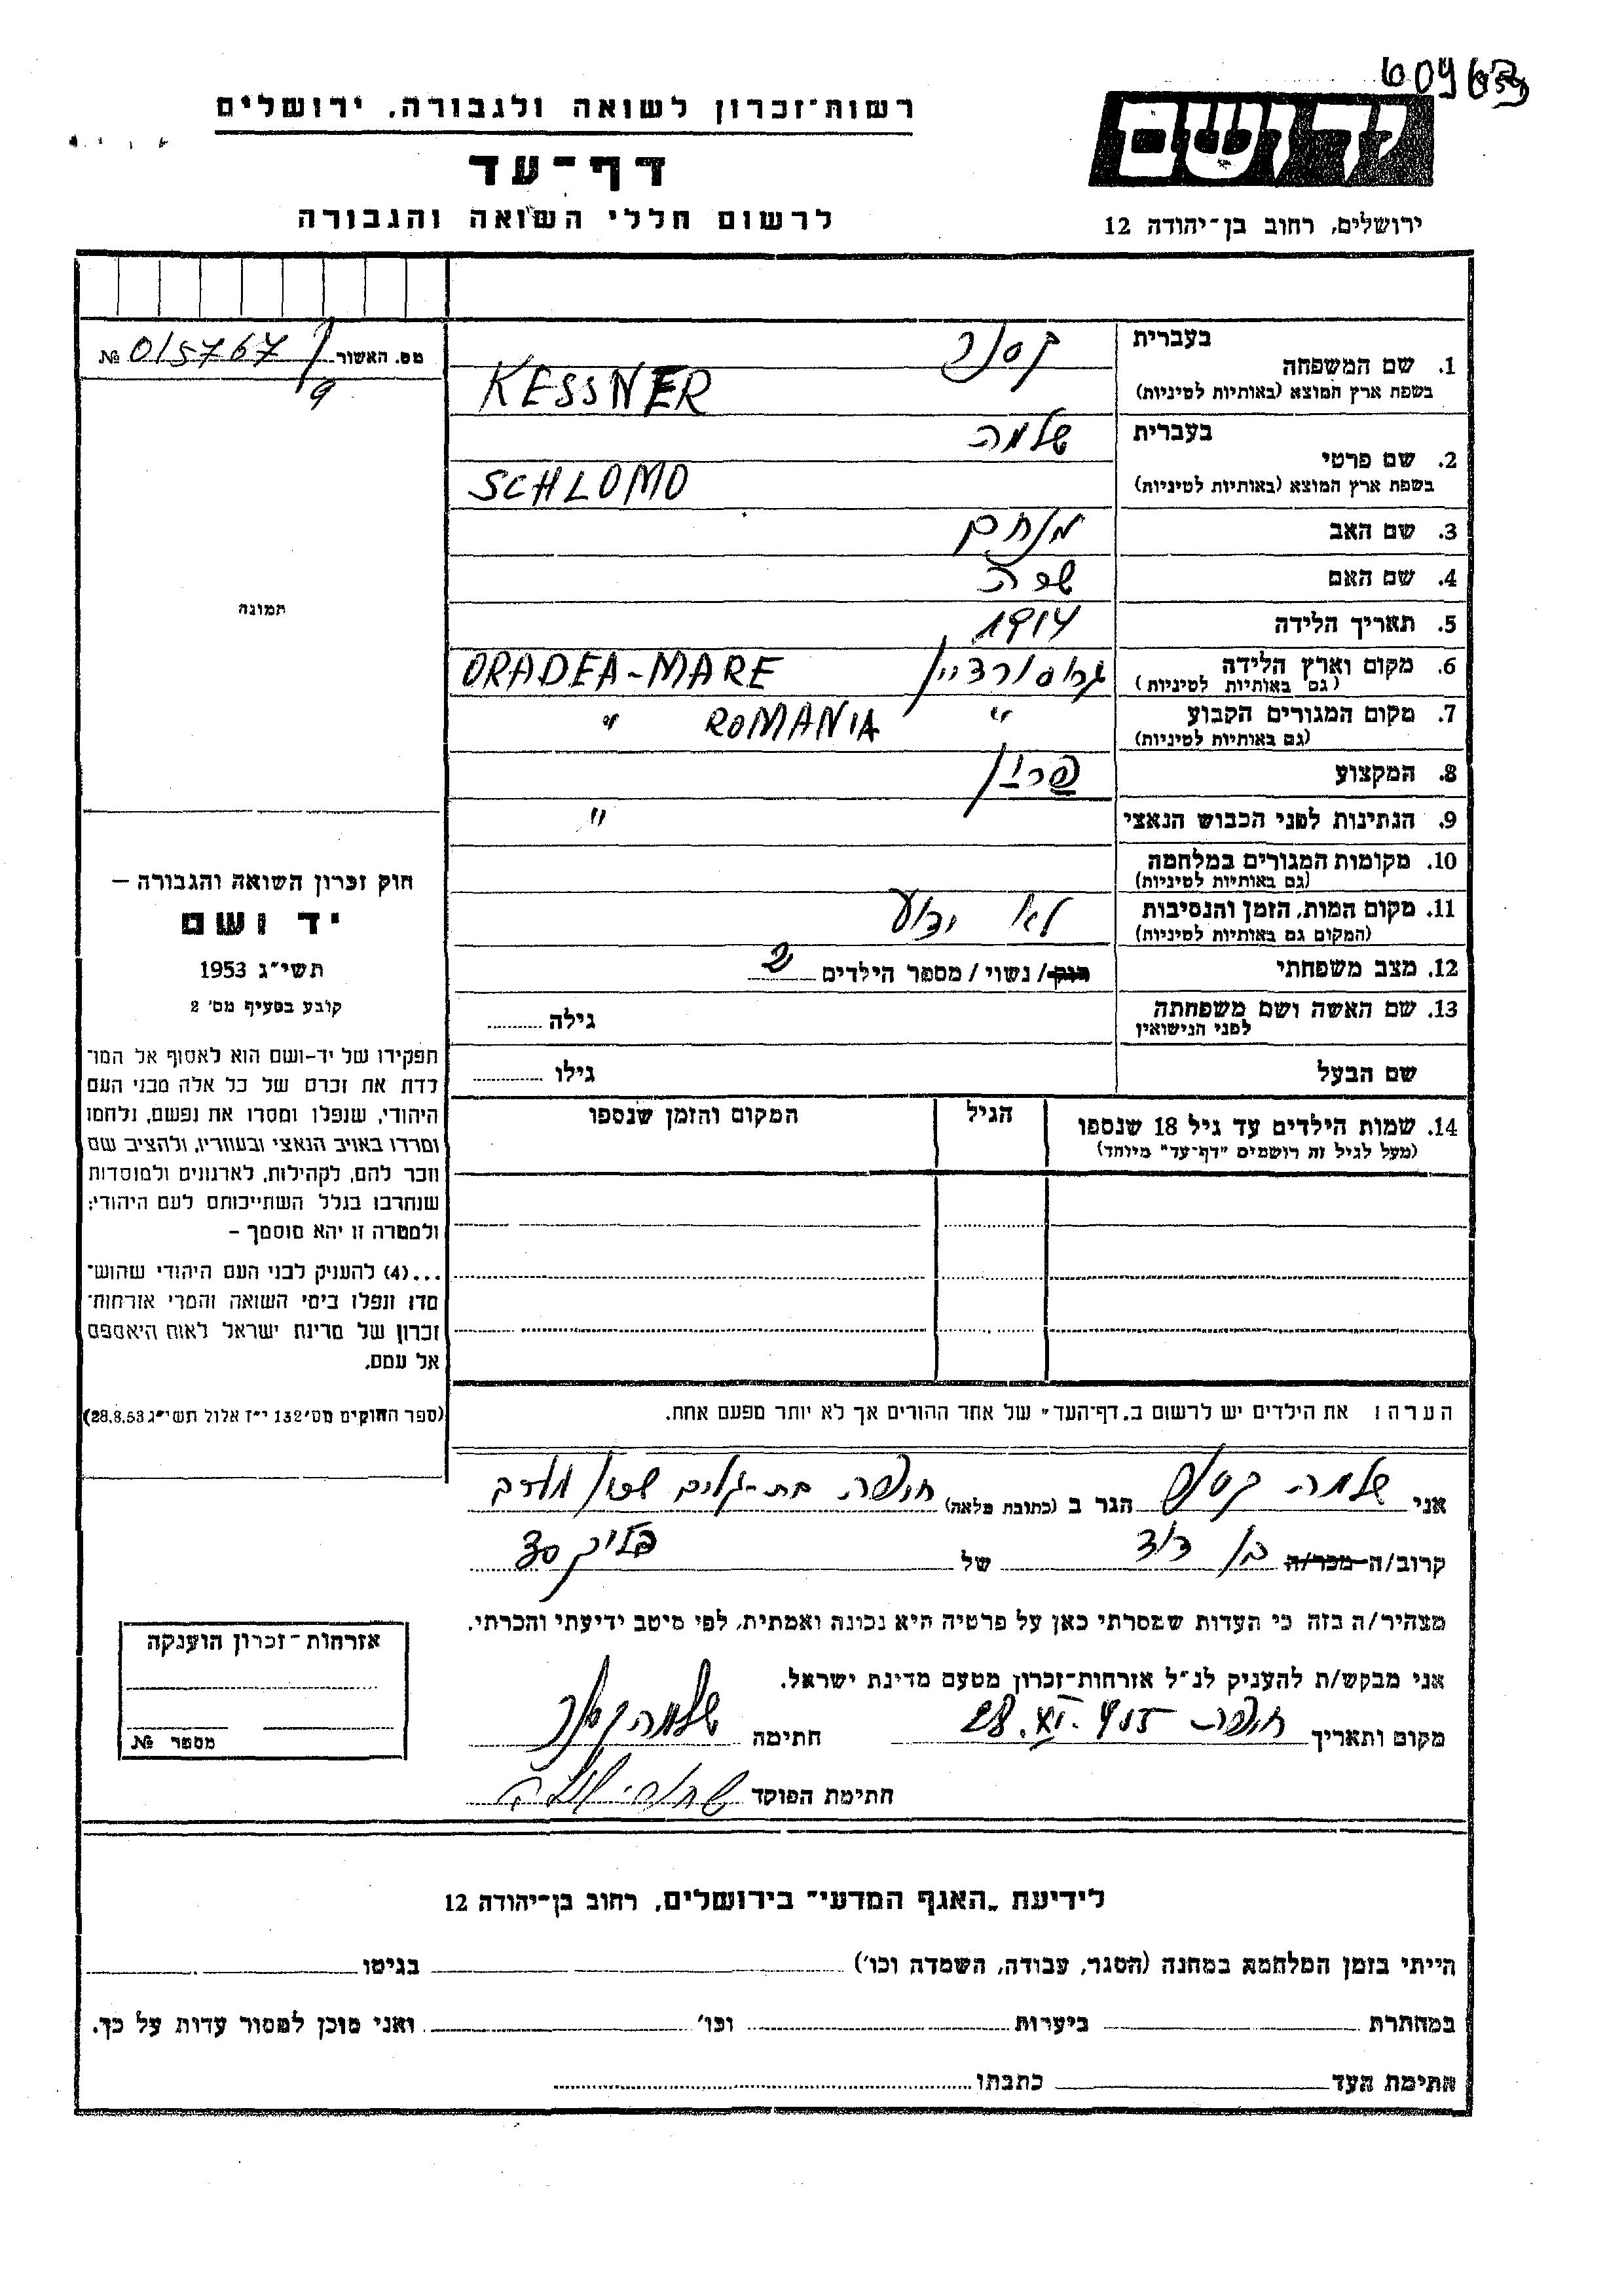 רשות־זכרון לשואה ולגבורה, ירושלים
דף־עד
לרשום חללי השואה והגבורה
יד ושם
ירושלים, רחוב בן־יהודה 12
מס. האשור № 015767
9
בעברית
1. שם המשפחה
בשפת ארץ המוצא (באותיות לטיניות)
קסנר
KESSNER
בעברית
2. שם פרטי
בשפת ארץ המוצא (באותיות לטיניות)
שלמה
SCHLOMO
3. שם האב מנחם
4. שם האם שרה
5. תאריך הלידה 1914
6. מקום וארץ הלידה
(גם באותיות לטיניות)
גרוסורדיין ORADEA-MARE
7. מקום המגורים הקבוע
(גם באותיות לטיניות)
" ROMANIA "
8. המקצוע
9. הנתינות לפני הכבוש הנאצי "
10. מקומות המגורים במלחמה
(גם באותיות לטיניות)
11. מקום המות, הזמן והנסיבות
(המקום גם באותיות לטיניות)
לא ידוע
12. מצב משפחתי רוק/ נשוי / מספר הילדים 2
13. שם האשה ושם משפחתה
לפני הנישואין
גילה
שם הבעל גילו
14. שמות הילדים עד גיל 18 שנספו
(מעל לגיל זה רושמים "דף־עד" מיוחד)
הגיל
המקום והזמן שנספו
תמונה
חוק זכרון השואה והגבורה –
יד ושם
תשי"ג 1953
קובע בסעיף מס' 2
תפקידו של יד-ושם הוא לאסוף אל המו־
לדת את זכרם של כל אלה מבני העם
היהודי, שנפלו ומסרו את נפשם, נלחמו
ומרדו באויב הנאצי ובעוזריו, ולהציב שם
וזכר להם, לקהילות, לארגונים ולמוסדות
שנחרבו בגלל השתייכותם לעם היהודי;
ולמטרה זו יהא מוסמך –
...(4) להעניק לבני העם היהודי שהוש־
מדו ונפלו בימי השואה והמרי אזרחות־
זכרון של מדינת ישראל לאות היאספם
אל עמם.
(ספר החוקים מס' 132 י"ז אלול תשי"ג 28.8.53)
הערה: את הילדים יש לרשום ב„דף־העד" של אחד ההורים אך לא יותר מפעם אחת.
אני שלמה קסנר הגר ב (כתובת מלאה) חיפה בת-גלים שכון
קרוב/ה מכר/ה בן דוד של
מצהיר/ה בזה כי העדות שמסרתי כאן על פרטיה היא נכונה ואמתית, לפי מיטב ידיעתי והכרתי.
אני מבקש/ת להעניק לנ"ל אזרחות־זכרון מטעם מדינת ישראל.
מקום ותאריך חיפה 28.XI.955 חתימה שלמה קסנר
חתימת הפוקד
אזרחות־זכרון הוענקה
מספר №
לידיעת „האגף המדעי" בירושלים, רחוב בן־יהודה 12
הייתי בזמן המלחמה במחנה (הסגר, עבודה, השמדה וכו') בגיטו
במחתרת ביערות וכו' ואני מוכן למסור עדות על כך.
חתימת העד כתבתו